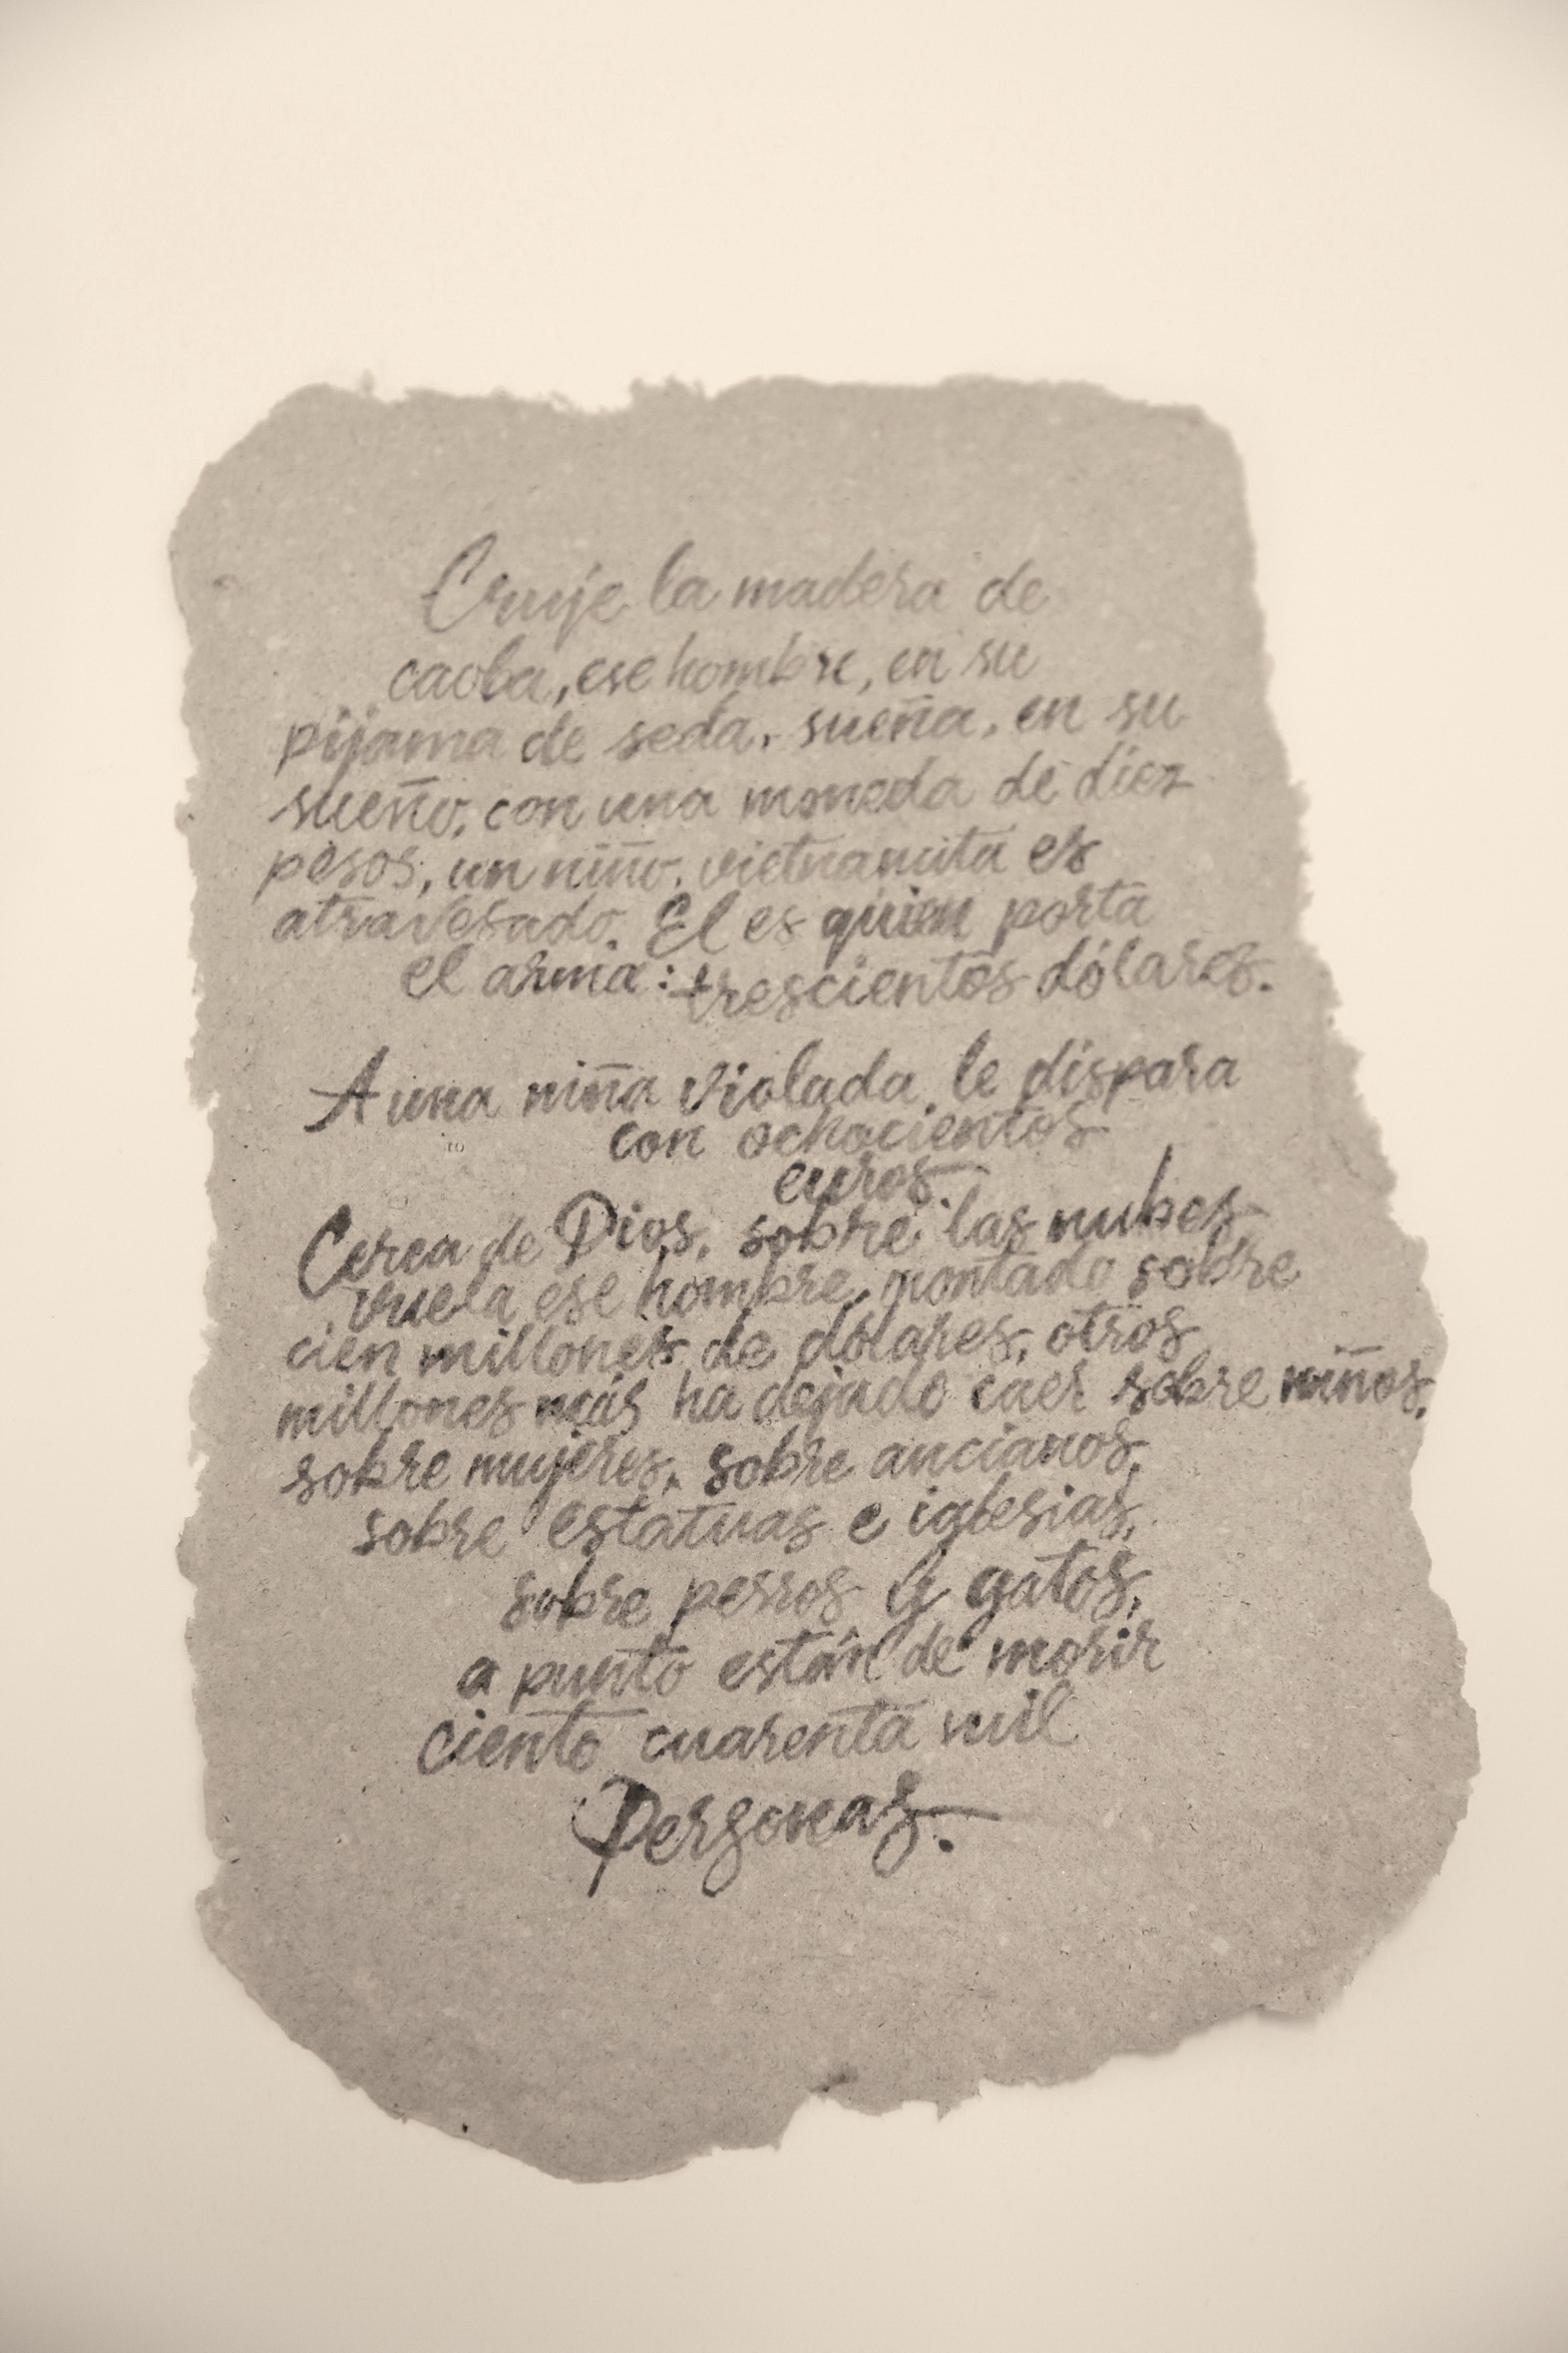 Cruje la madera de
caoba, ese hombre, en su
pijama de seda, sueña, en su
sueño, con una moneda de diez
pesos, un niño, vietnamita es
atravesado. El es quien porta
el arma: trescientos dólares.
A una niña violada le dispara
con ochocientos
euros.
Cerca de Dios, sobre las nubes,
vuela ese hombre, montado sobre
cien millones de dólares, otros
millones más ha dejado caer sobre niños,
sobre mujeres, sobre ancianos,
sobre estatuas e iglesias,
sobre perros y gatos,
a punto están de morir
ciento cuarenta mil
Personas.